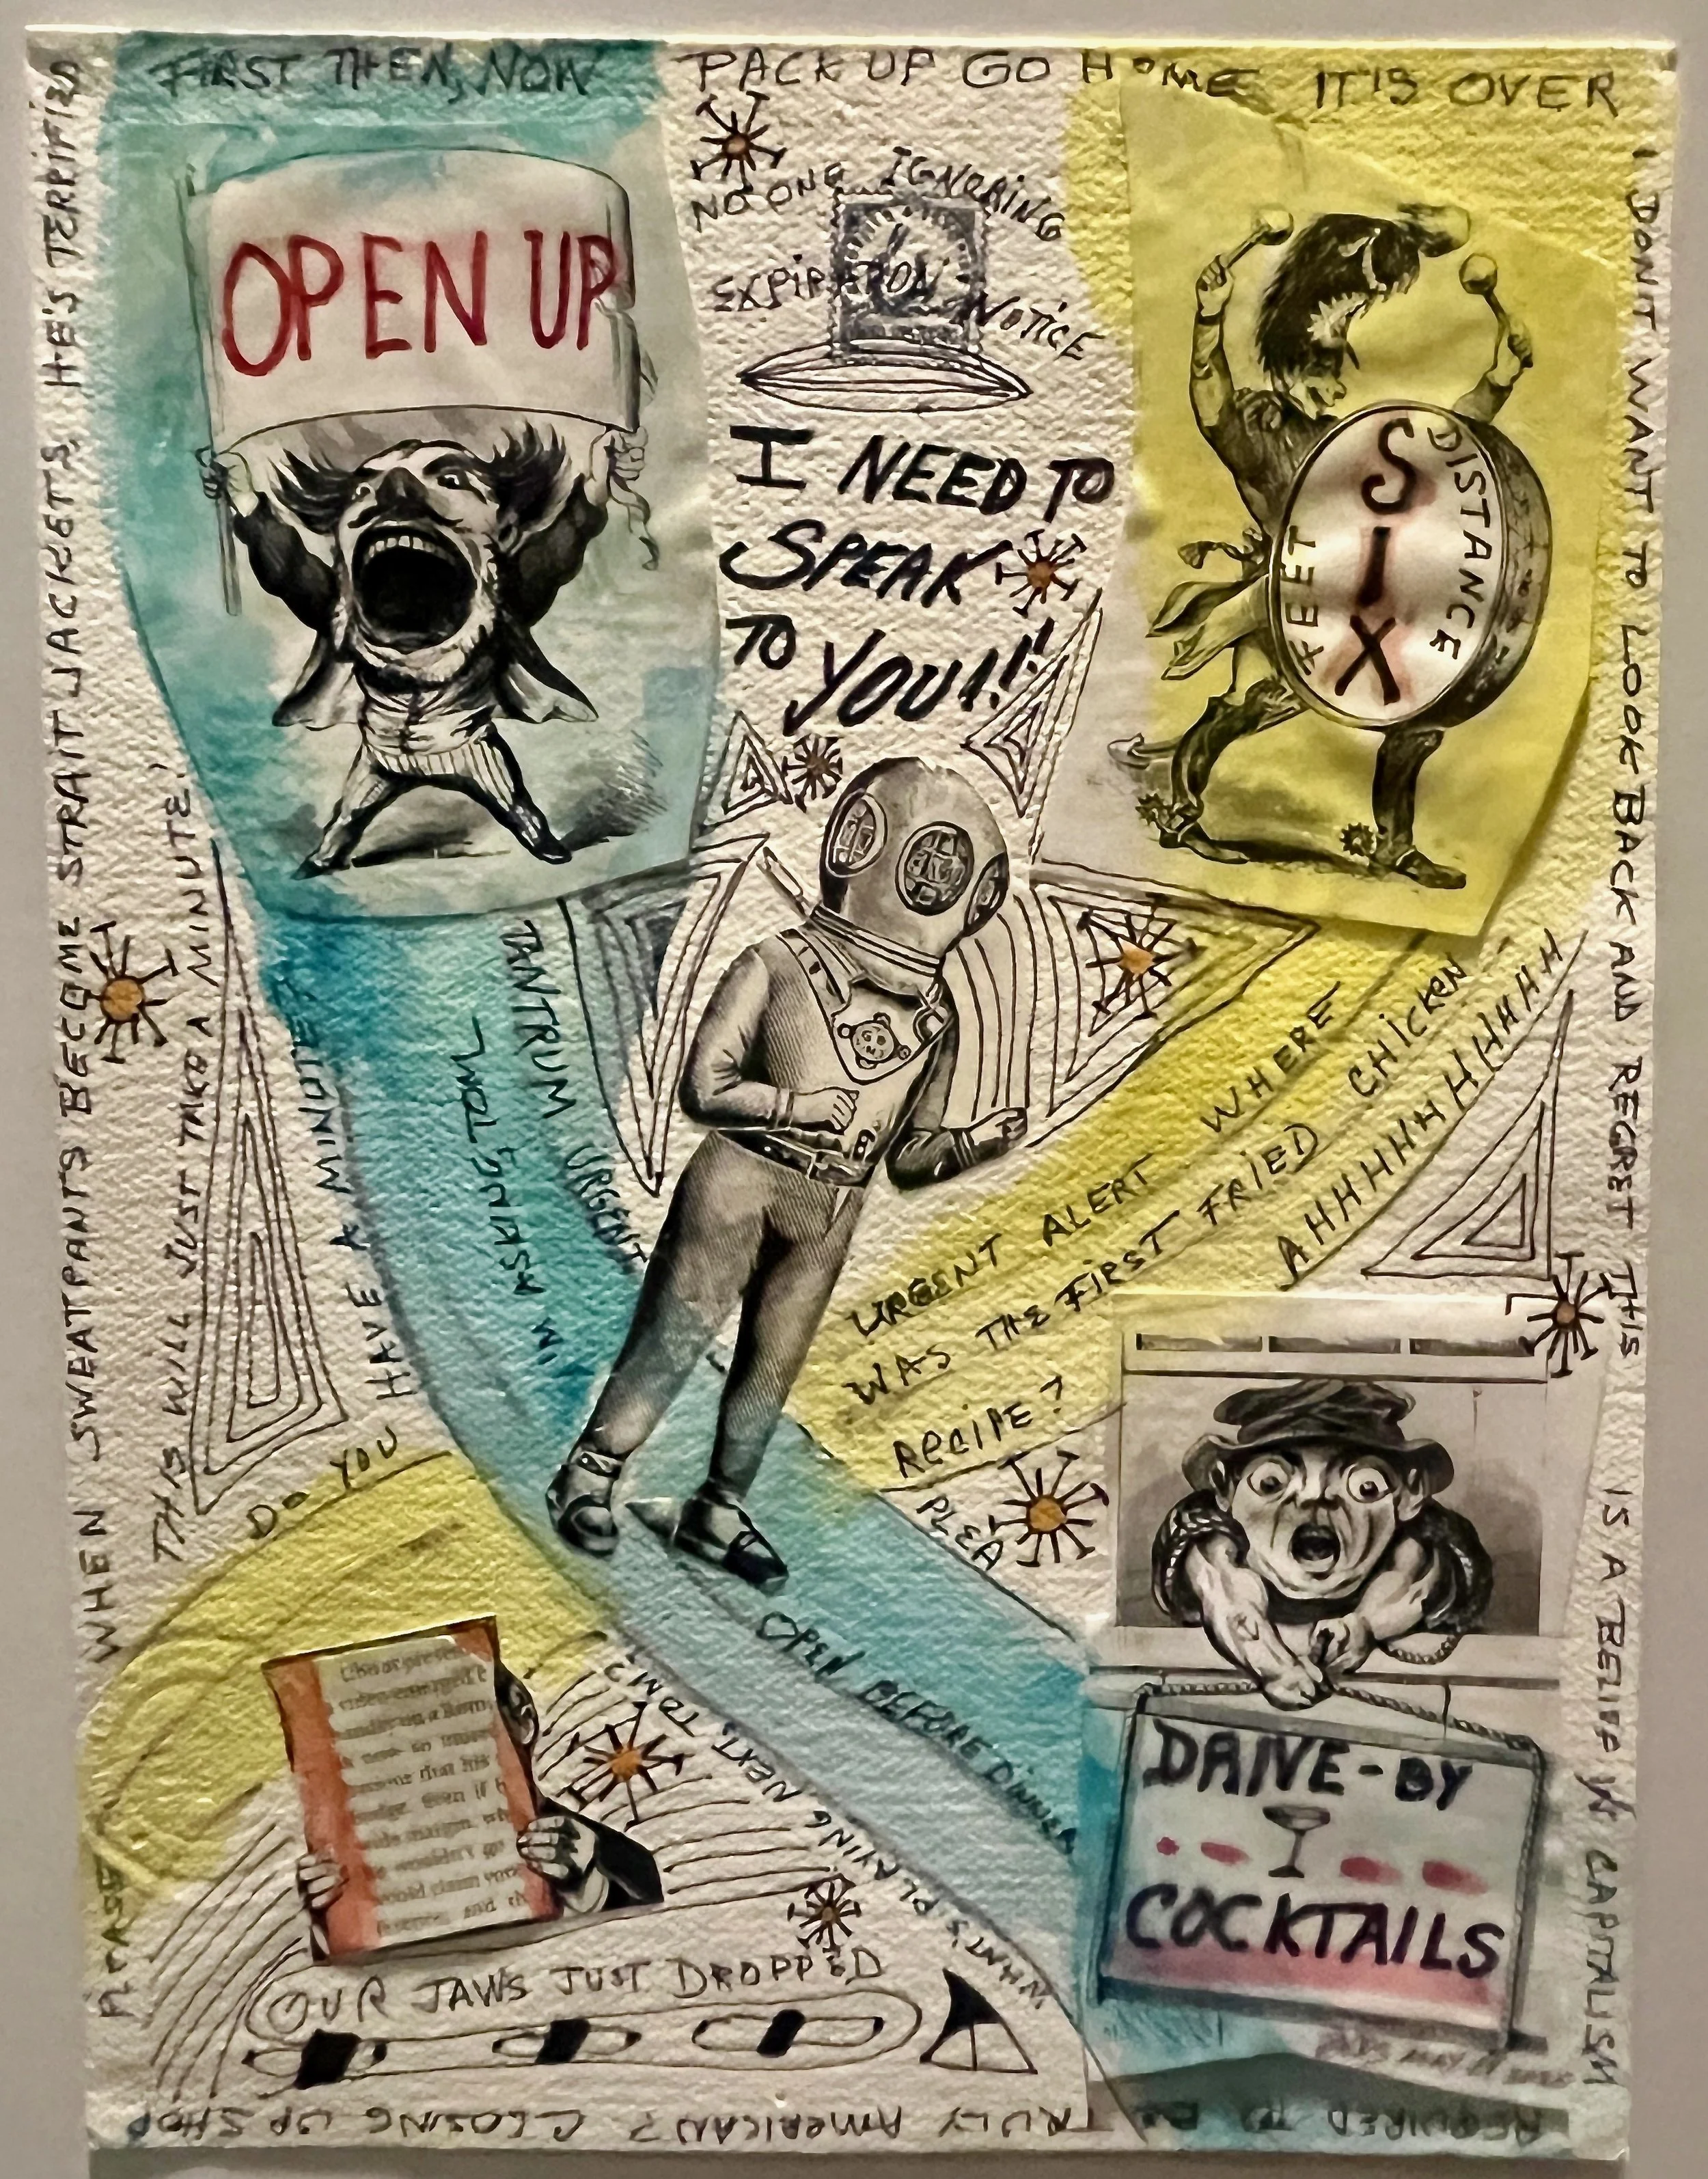 FIRST THEN, NOW
PACK UP GO HOME IT'S OVER
I DON'T WANT TO LOOK BACK AND REGRET THIS
IS A BELIEF IN CAPITALISM
REQUIRED TO BE TRULY AMERICAN? CLOSING UP SHOP
PLEASE
WHEN SWEATPANTS BECOME STRAIT JACKETS, HE'S TERRIFIED
THIS WILL JUST TAKE A MINUTE!
OPEN UP
NO ONE IGNORING
EXPIRATION NOTICE
I NEED TO
SPEAK
TO YOU!!!
SIX
FEET
DISTANCE
DO YOU
HAVE A MINUTE?
TANTRUM
URGENT
URGENT ALERT WHERE
WAS THE FIRST FRIED CHICKEN
RECIPE?
AHHHHHHHHHHHH
PLEA
OPEN BEFORE DINNER
WHAT'S PLAYING NEXT TOM?
OUR JAWS JUST DROPPED
DRIVE-BY
COCKTAILS